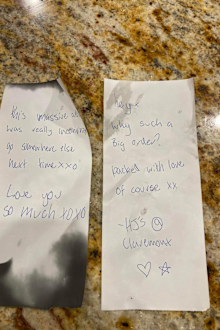 this massive
was really
go somewhere else
next time xxo
Love you
so much xoxo
Why such a
Big order?
Packed with love
of course xx
- HJ's @
Claremont